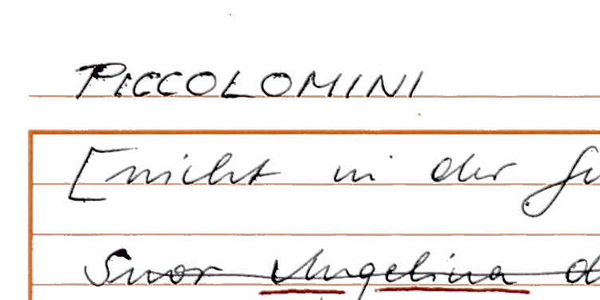 PICCOLOMINI
[nicht in der
Suor Angelina